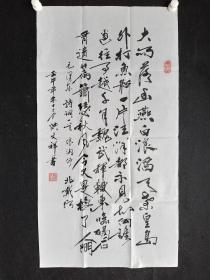 大雨落幽燕白浪滔天秦皇岛
外打鱼船一片汪洋都不见知向谁
边往事越千年魏武挥鞭东临碣石
有遗篇萧瑟秋风今又是换了人间
毛泽东诗词一首浪淘沙北戴河
年十二月 文祥书